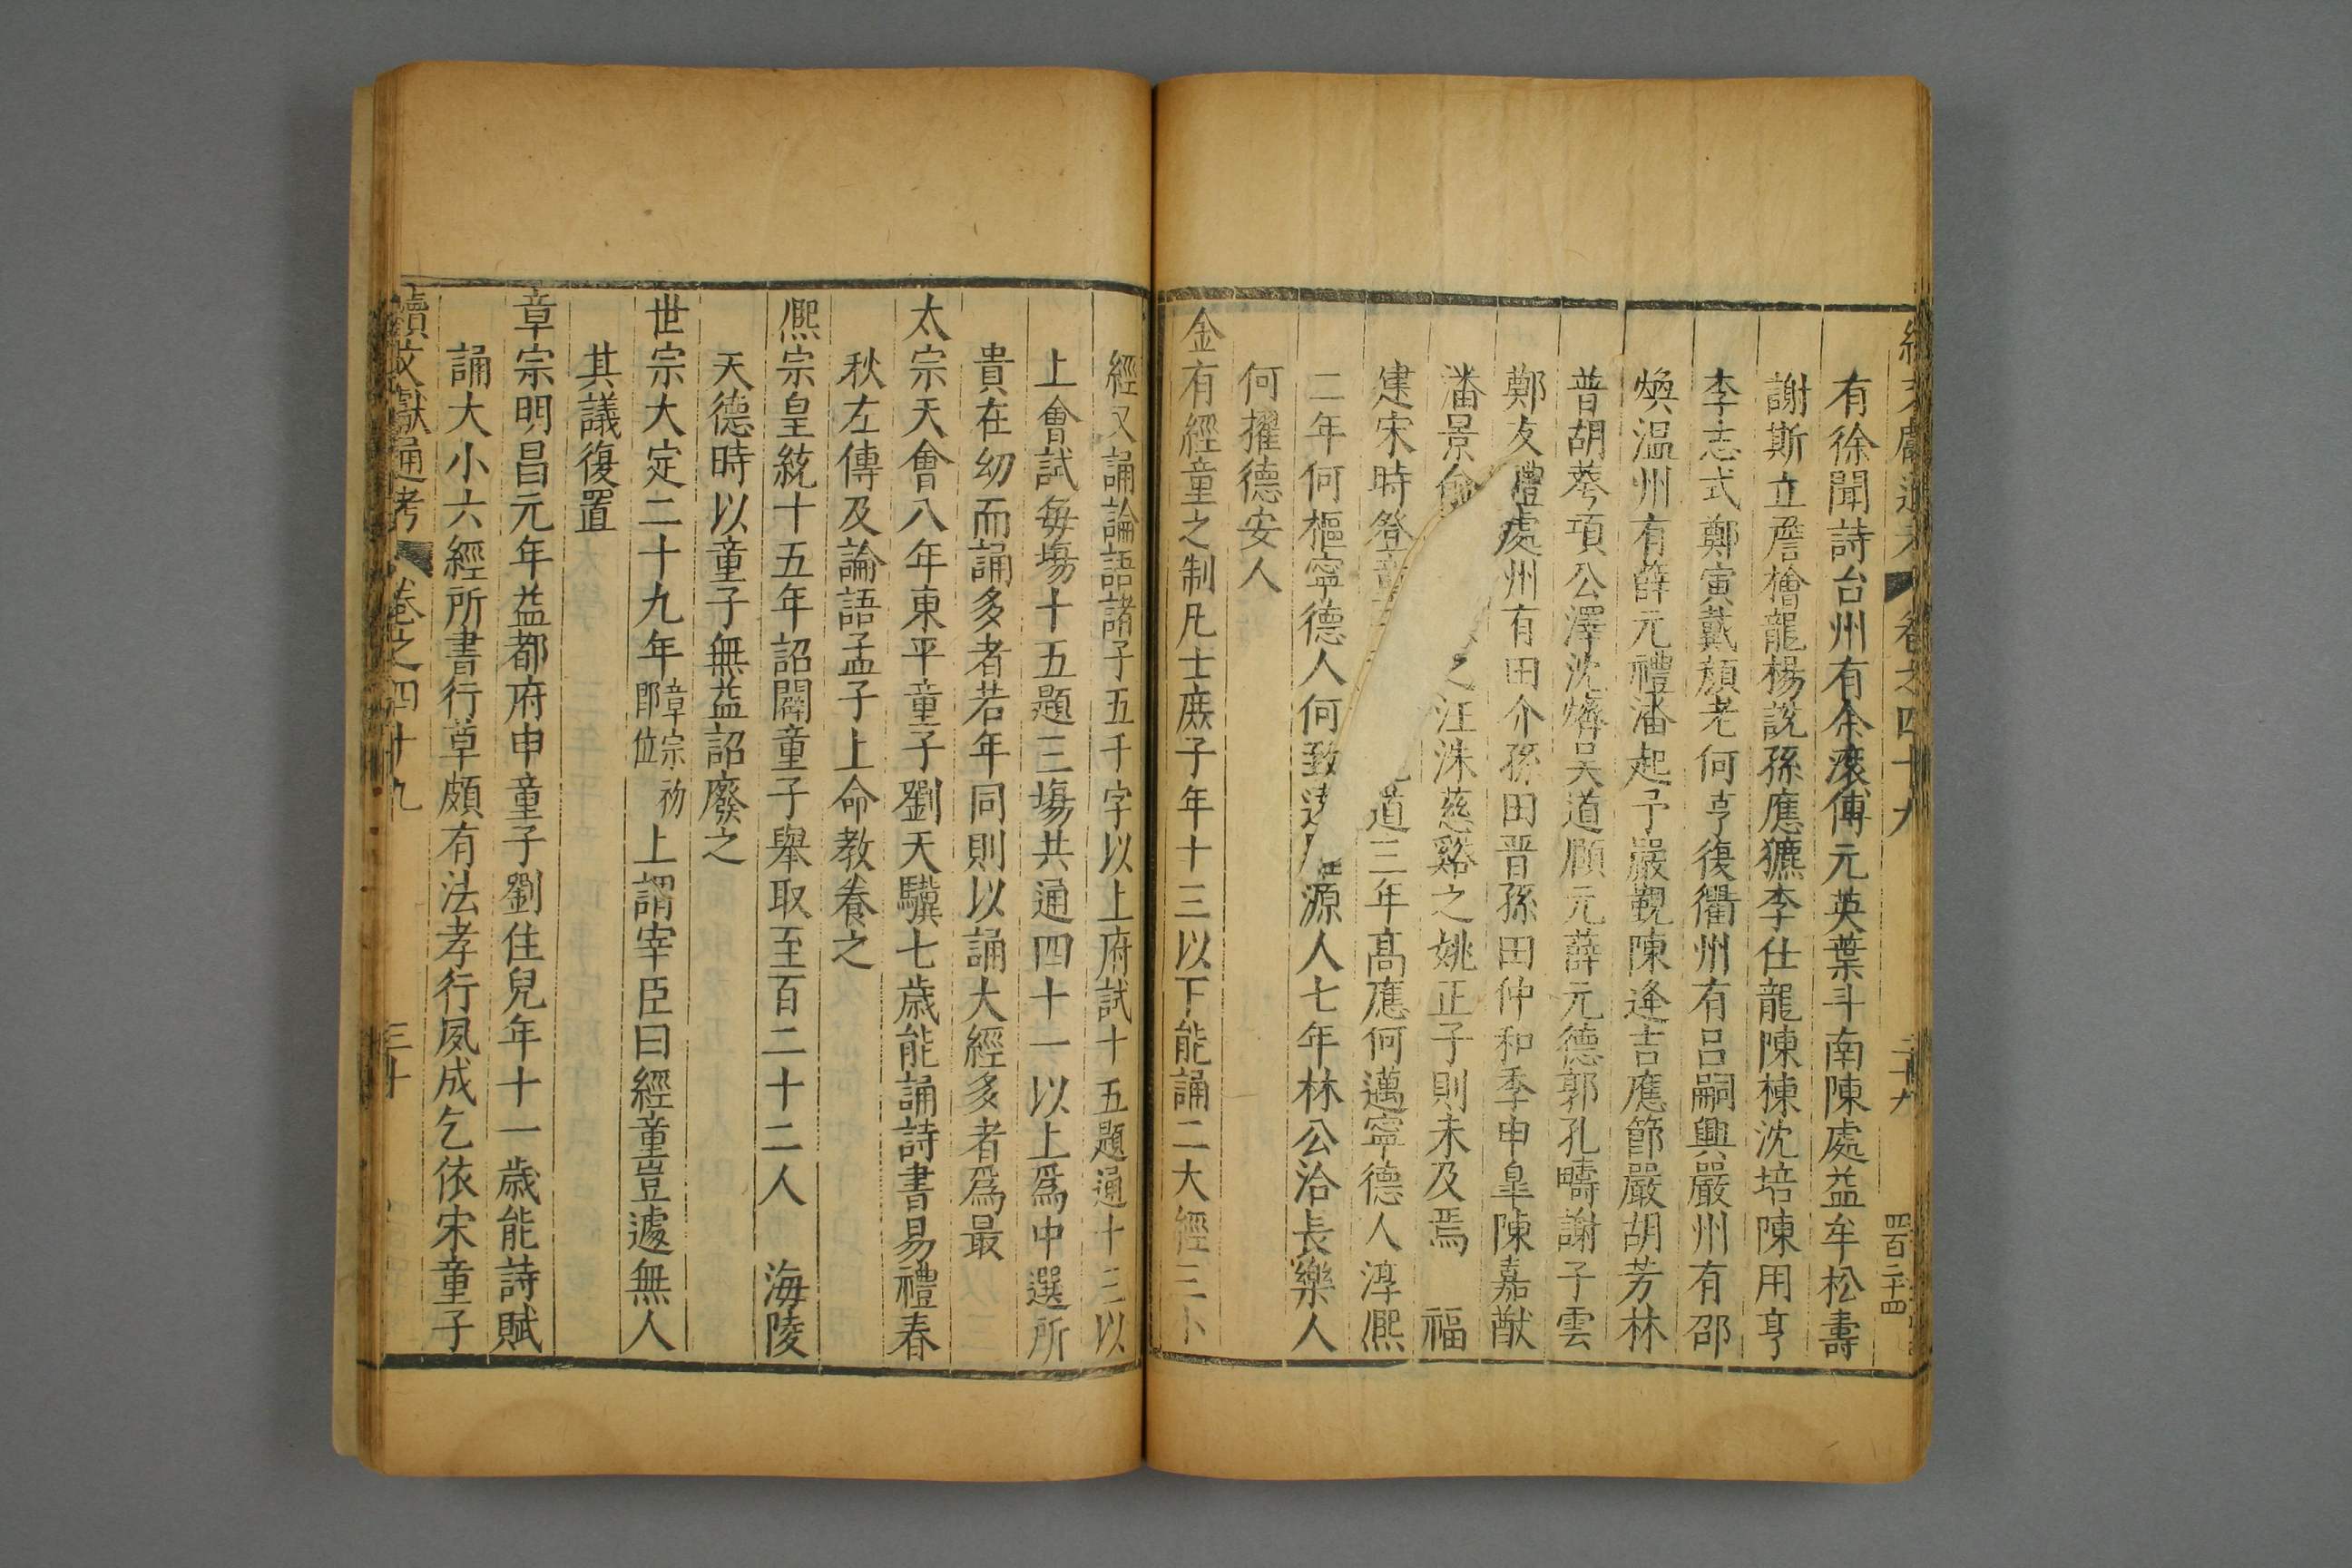 續文獻通考 卷之四十九 二十九 四百二十四
有徐聞詩台州有余瀠傅元英葉斗南陳處益牟松壽
謝斯立詹檜龍楊說孫應𤣎李仕龍陳棟沈培陳用亨
李志式鄭寅戴顏老何亨復衢州有呂嗣興嚴州有邵
煥溫州有薛元禮潘起予嚴觀陳逢吉應節嚴胡芳林
普胡蕚項公澤沈𤏡吳道顧元薛元德郭孔疇謝子雲
鄭友禮處州有田介孫田晋孫田仲和季申臯陳嘉猷
潘景 之汪洙慈谿之姚正子則未及焉 福
建宋時登童 道三年髙應何邁寧德人淳熙
二年何樞寧德人何致 源人七年林公洽長樂人
何擢德安人
金有經童之制凡士庶子年十三以下能誦二大經三小
經又誦論語諸子五千字以上府試十五題通十三以
上會試每塲十五題三塲共通四十一以上爲中選所
貴在幼而誦多者若年同則以誦大經多者爲最
太宗天會八年東平童子劉天驥七歲能誦詩書易禮春
秋左傳及論語孟子上命教養之
熙宗皇統十五年詔闢童子舉取至百二十二人 海陵
天德時以童子無益詔廢之
世宗大定二十九年章宗初即位上謂宰臣曰經童豈遽無人
其議復置
章宗明昌元年益都府申童子劉住兒年十一歲能詩賦
誦大小六經所書行草頗有法孝行夙成乞依宋童子
續文獻通考 卷之四十九 三十